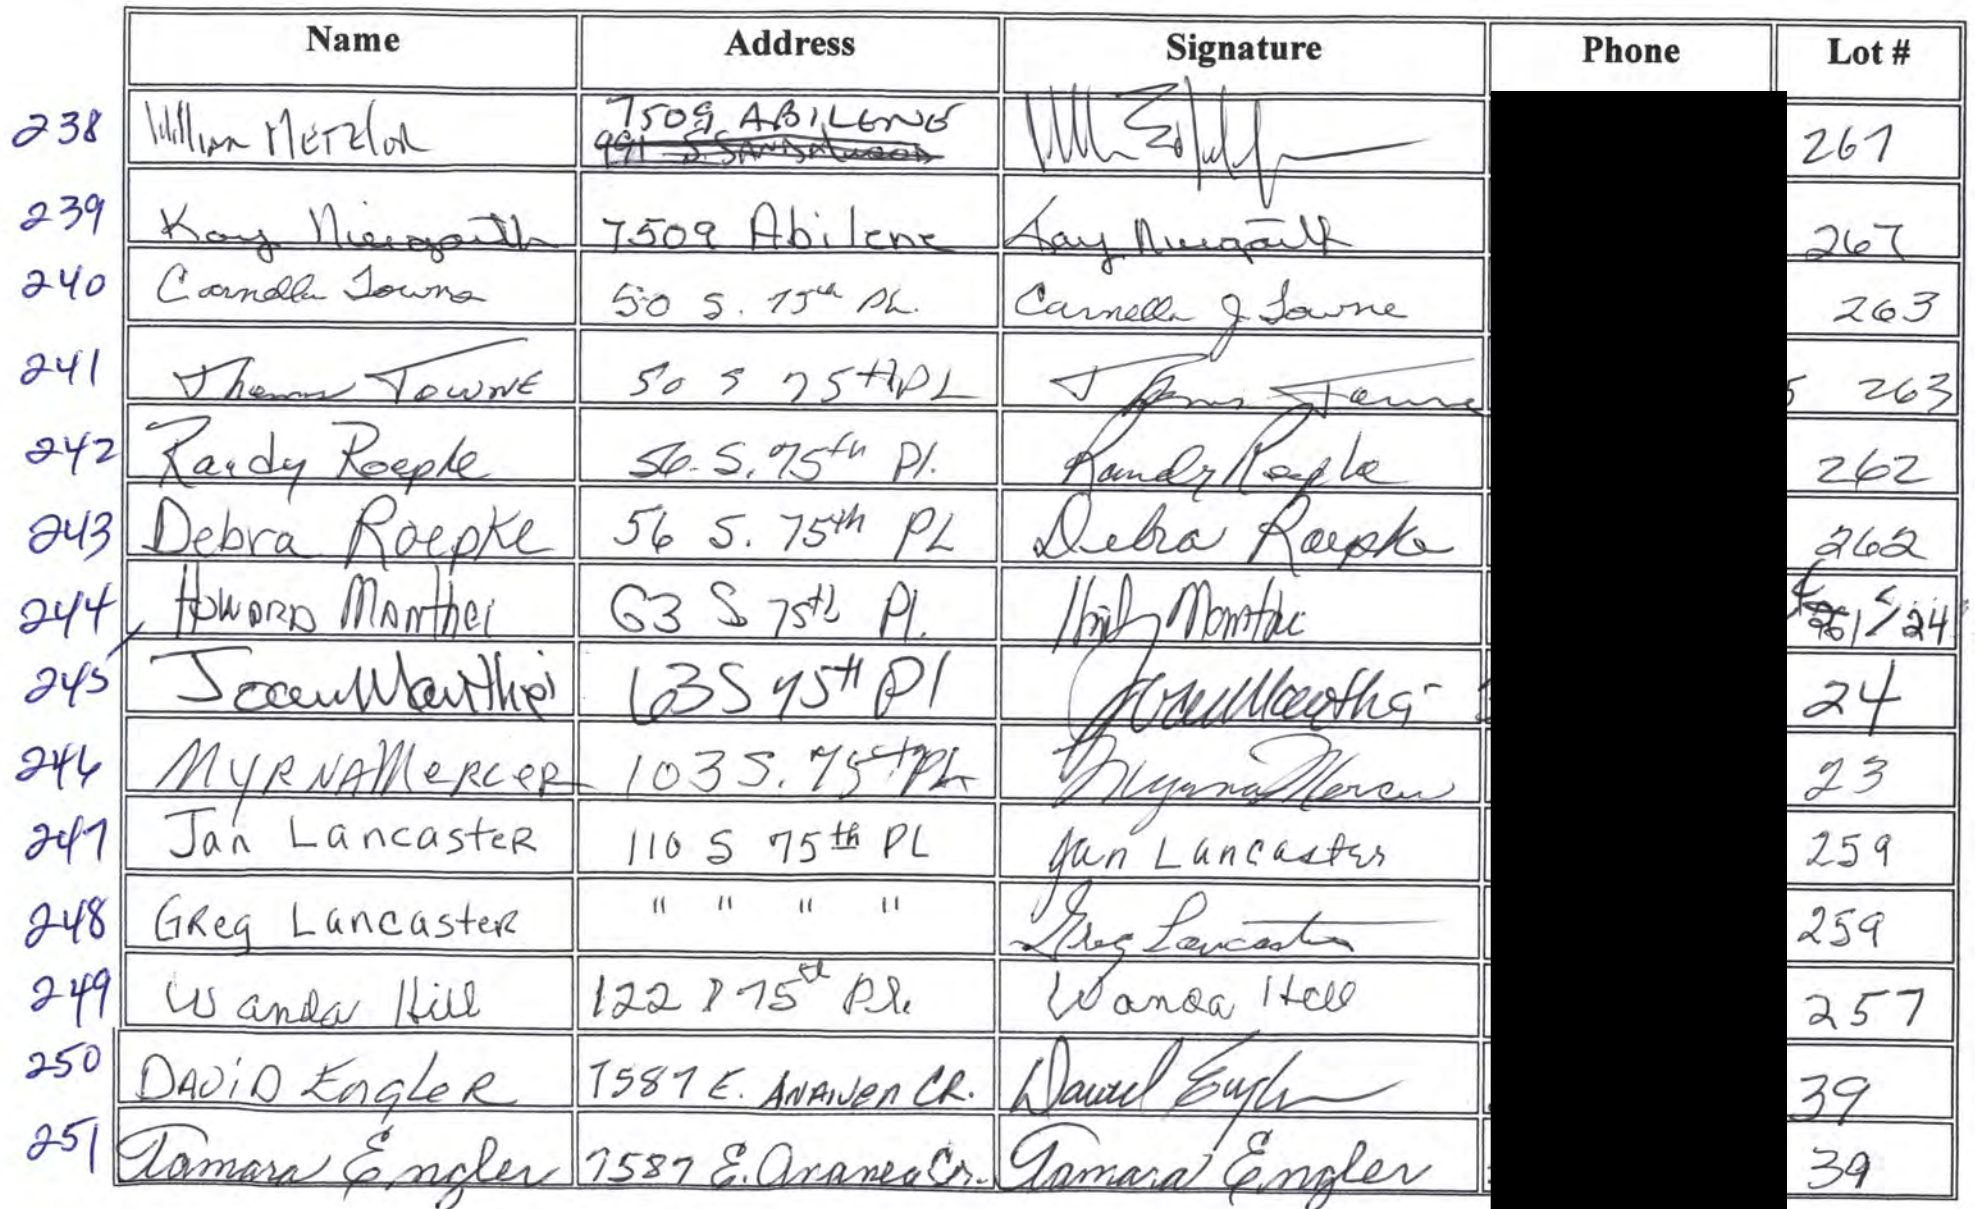 Name Address Signature Phone Lot #
238 William Metzlor 7509 ABILENE 267
239 Kay Niergarth 7509 Abilene Kay Niergarth 267
240 Carnella Towne 50 S. 75th PL. Carnella J Towne 263
241 Thomas Towne 50 S 75th PL Thomas Towne 263
242 Randy Roepke 56 S. 75th Pl. Randy Roepke 262
243 Debra Roepke 56 S. 75th PL Debra Roepke 262
244 Howard Manthei 63 S 75th Pl. 24
245 Joan Manthei 63 S 75th Pl Joan Manthei 24
246 MYRNA MERCER 103 S. 75th PL Myrna Mercer 23
247 Jan Lancaster 110 S 75th PL Jan Lancaster 259
248 Greg Lancaster " " " " Greg Lancaster 259
249 Wanda Hill 122 S 75th Pl. Wanda Hill 257
250 DAVID Engler 7587 E. CR. David Engler 39
251 Tamara Engler 7587 E. Cr. Tamara Engler 39